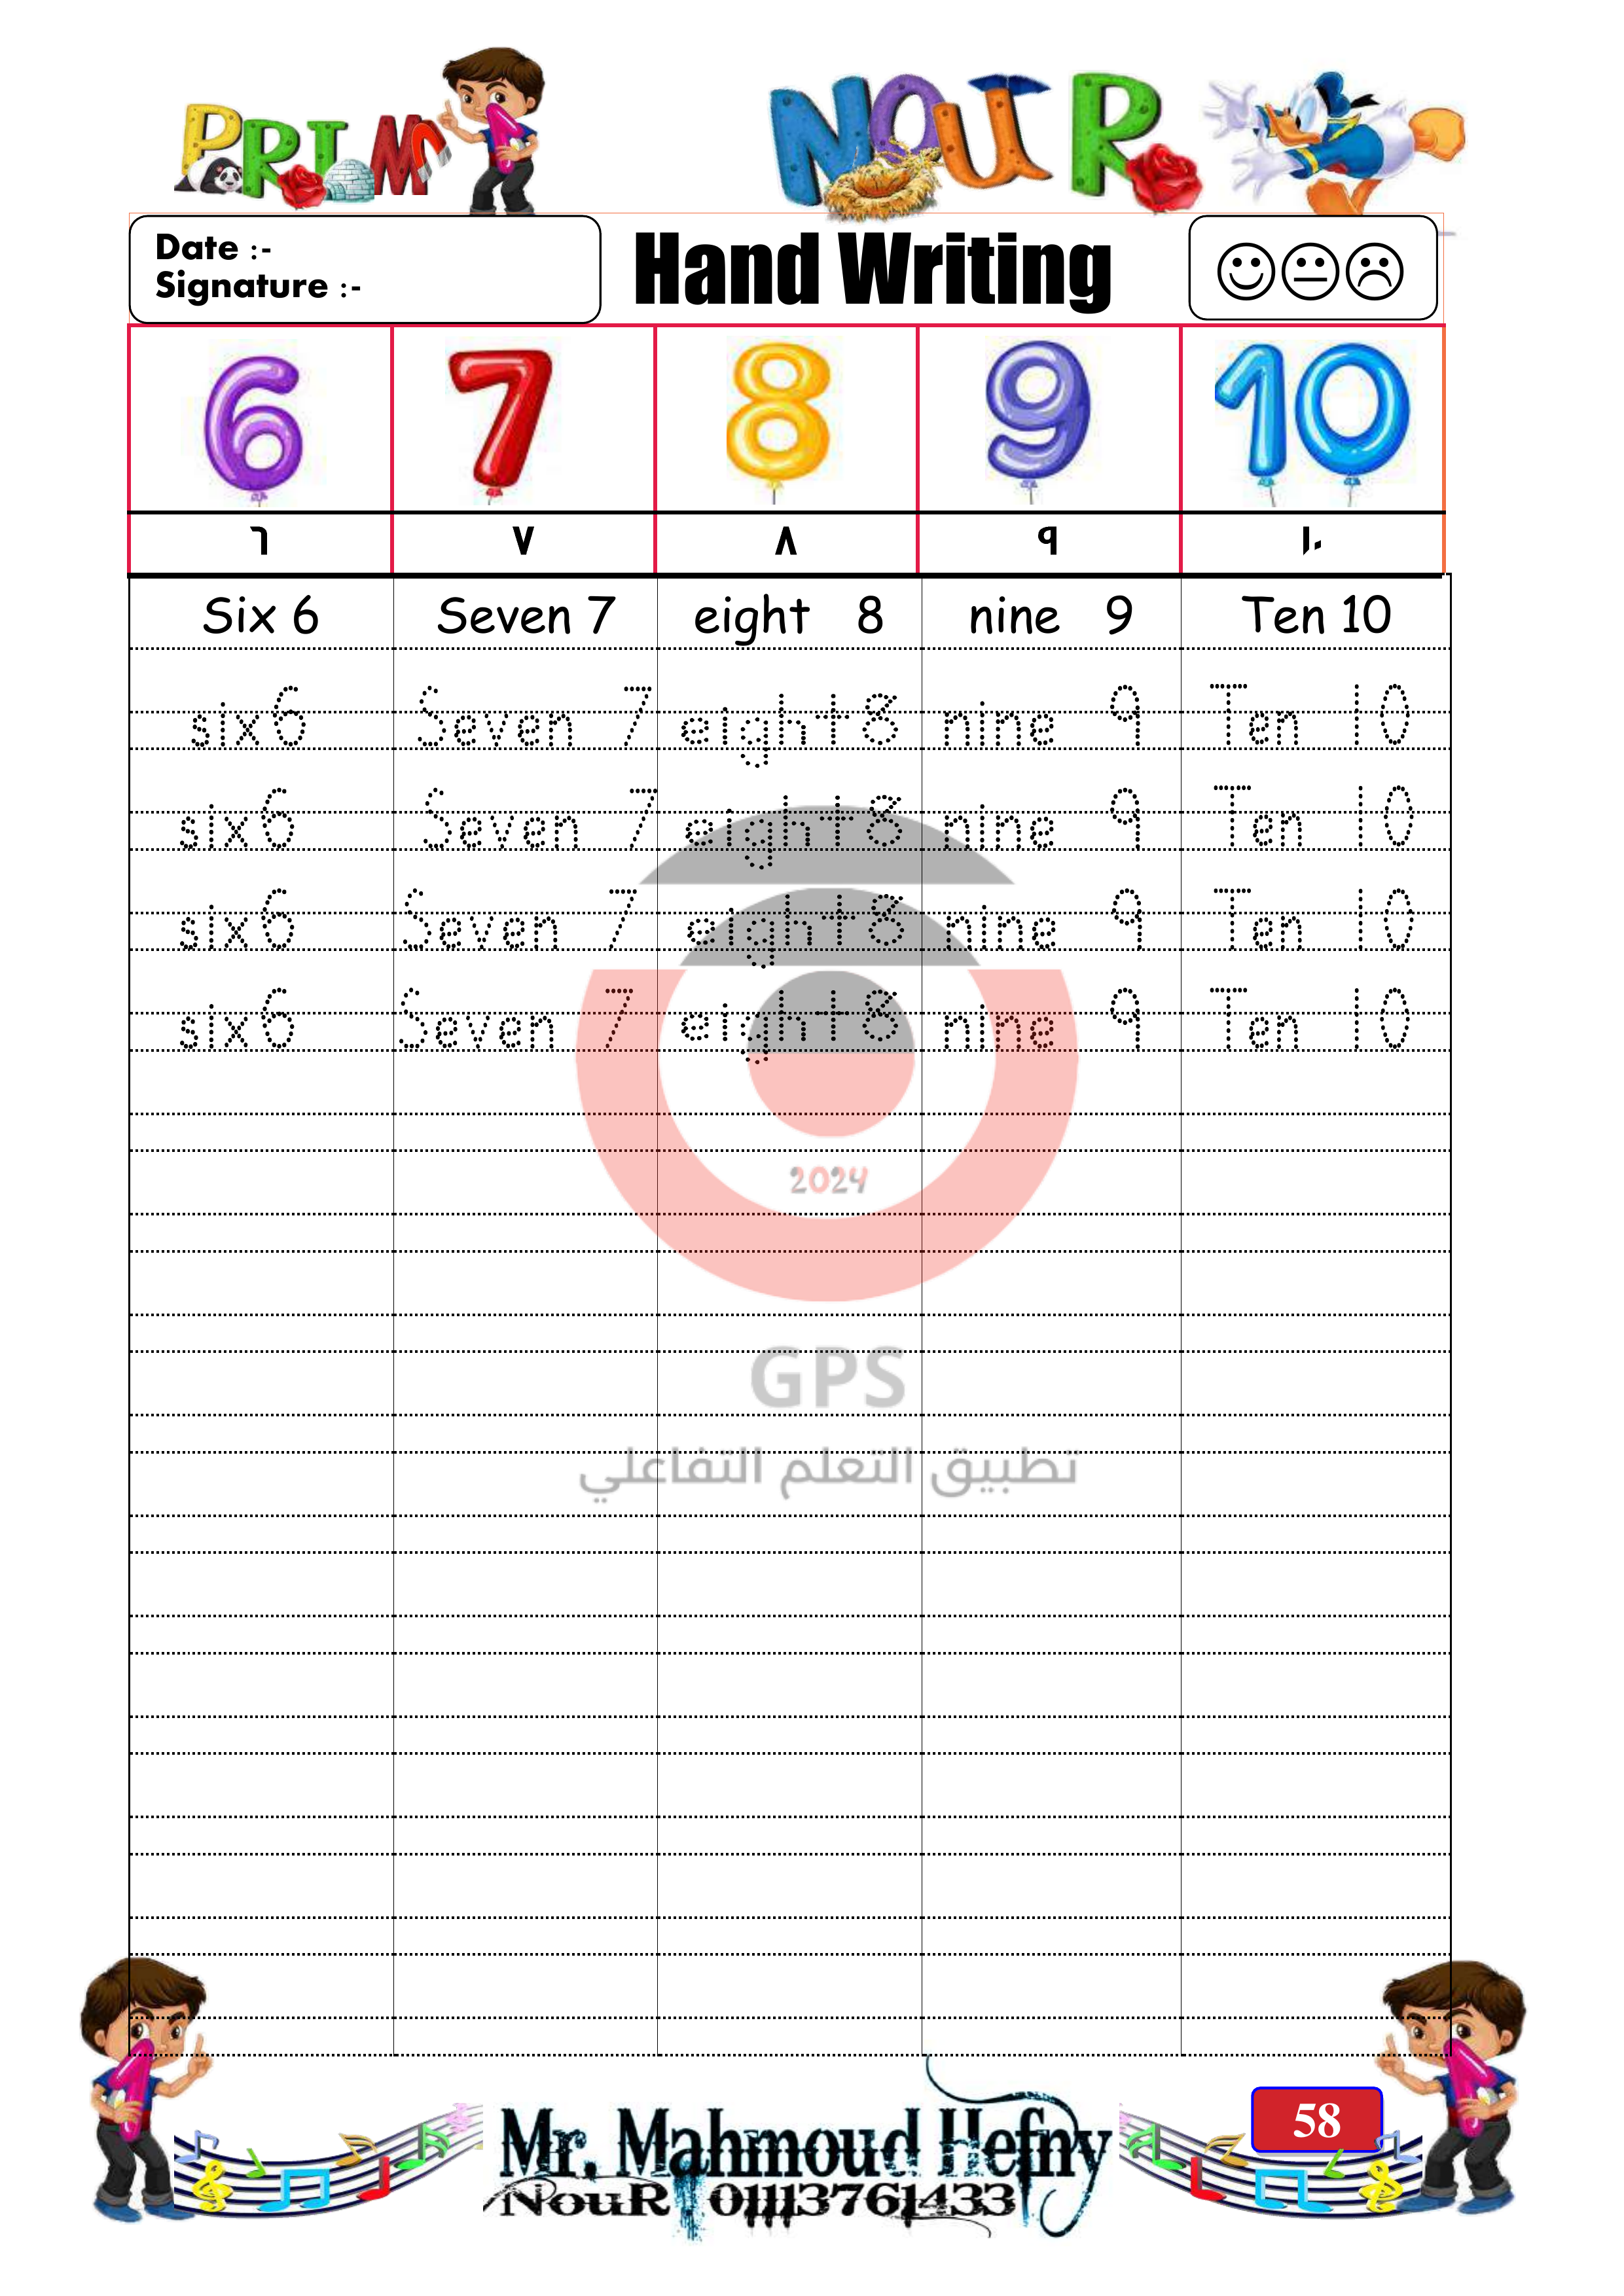 PRIM 1 NOUR
Date :-
Signature :-
Hand Writing
6 7 8 9 10
٦ ٧ ٨ ٩ ١٠
Six 6 Seven 7 eight 8 nine 9 Ten 10
six6 Seven 7 eight8 nine 9 Ten 10
six6 Seven 7 eight8 nine 9 Ten 10
six6 Seven 7 eight8 nine 9 Ten 10
six6 Seven 7 eight8 nine 9 Ten 10
2024
GPS
تطبيق التعلم التفاعلي
1 1
58
Mr. Mahmoud Hefny
NouR . 01113761433